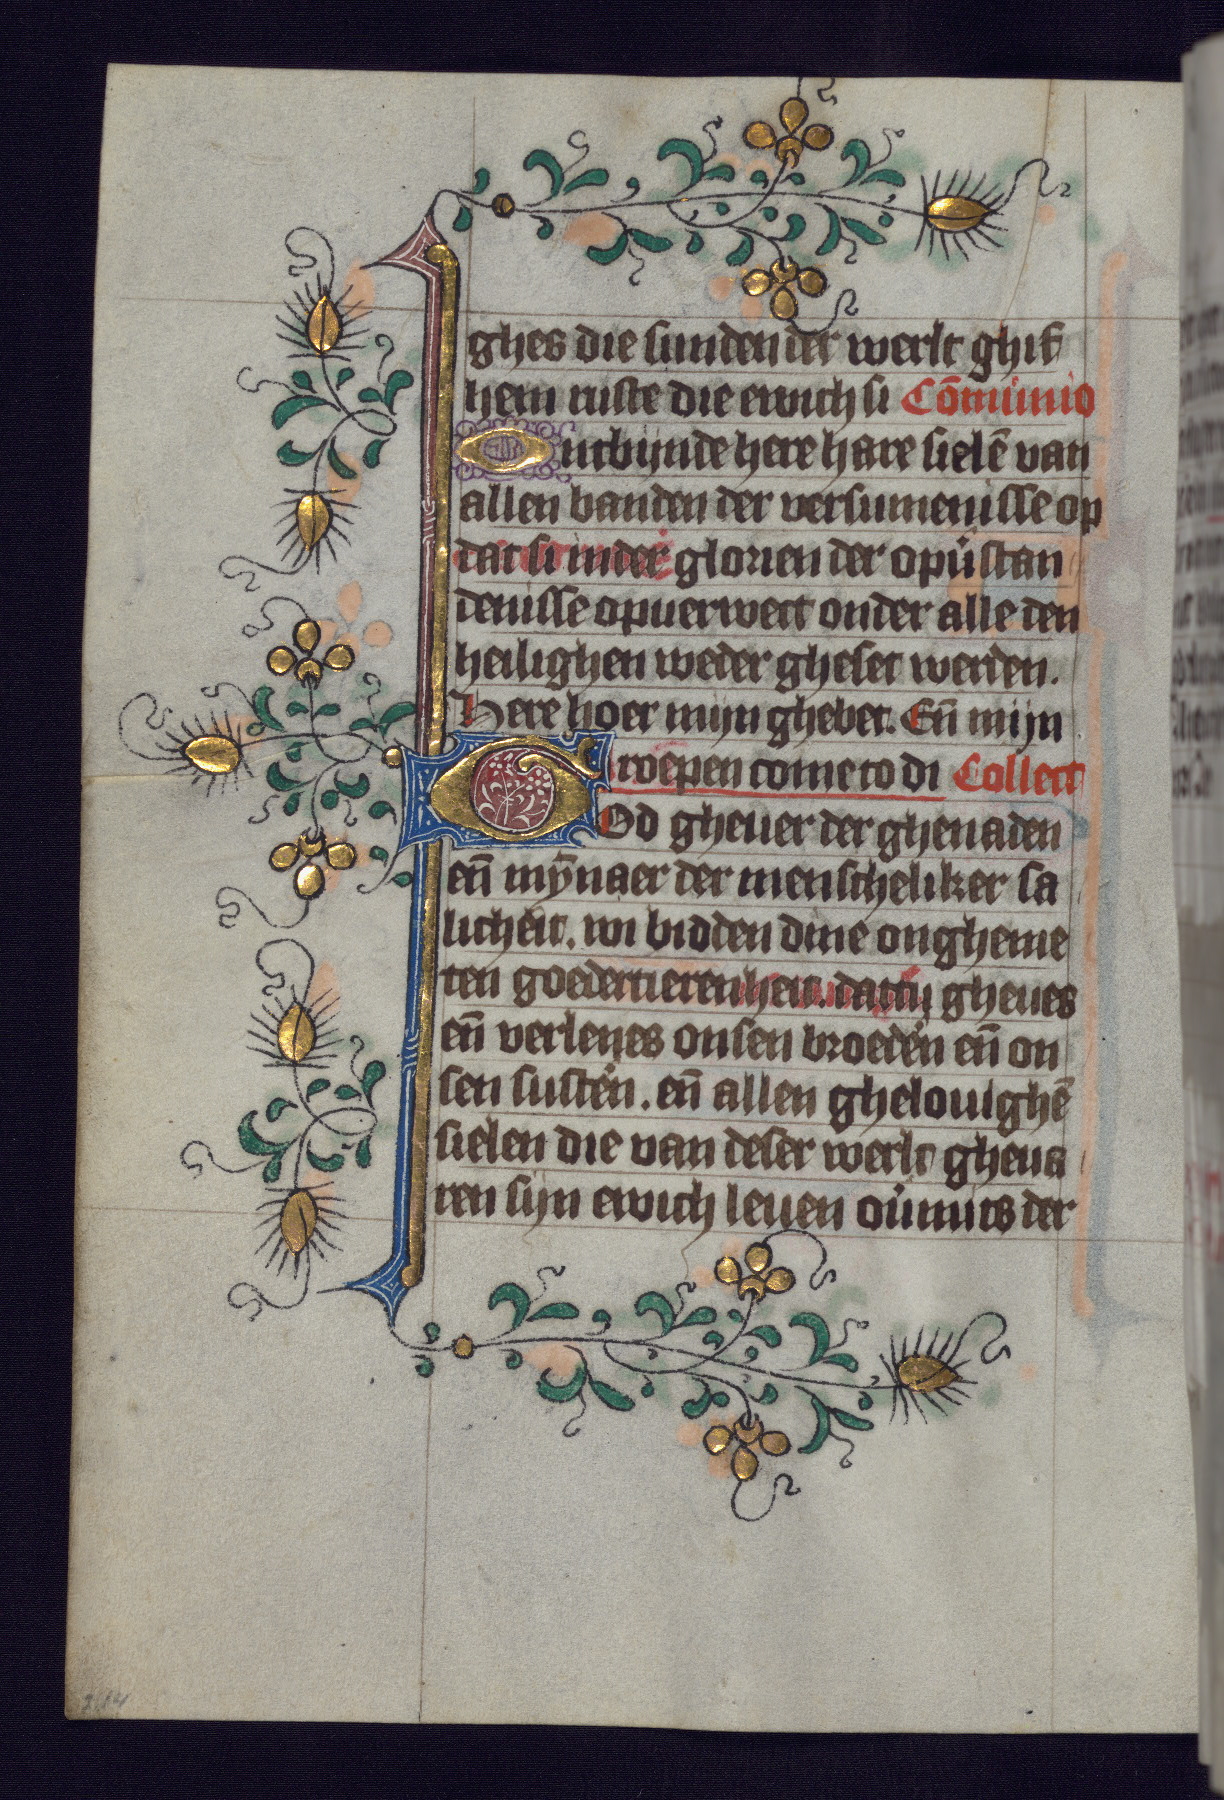 ghes die sunden der werlt ghif
hem ruste die ewich si Cōmūnio
Ontbijnde here hare sielē van
allen banden der versumenisse op
dat si inder glorien der opūstan
denisse opuerwect onder alle den
heilighen weder gheset werden.
Here hoer mijn ghebet. Eñ mijn
roepen come to di Collect
God gheuer der ghenaden
eñ mȳnaer der menscheliker sa
licheit. wi bidden dine ongheme
ten goedertierenheit. dattu gheues
eñ verlenes onsen broedeʼn eñ on
sen susteʼn. eñ allen ghelouighē
sielen die van deser werlt gheua
ren sijn ewich leuen ouʼmits der